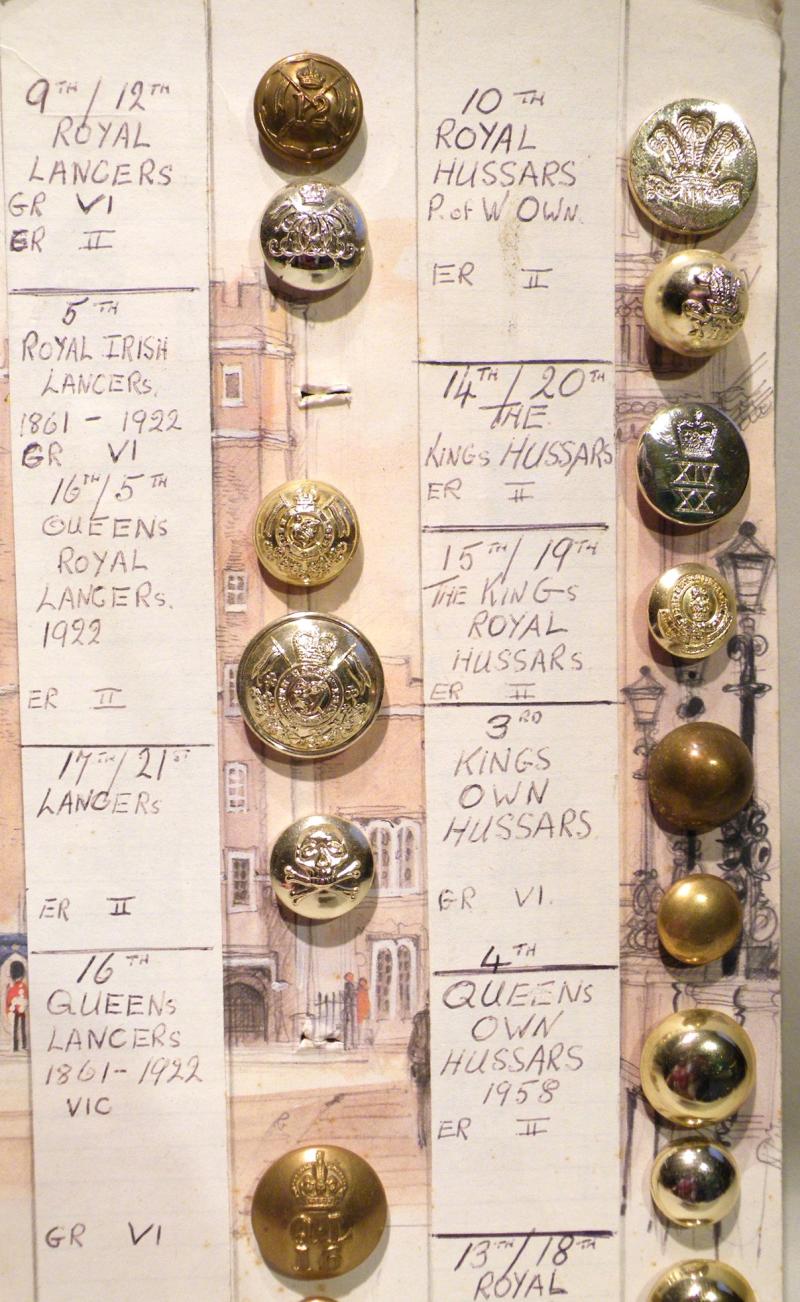 9TH / 12TH
ROYAL
LANCERS
GR VI
ER II
5TH
ROYAL IRISH
LANCERS.
1861 - 1922
GR VI
16TH/5TH
QUEENS
ROYAL
LANCERS.
1922
ER II
17TH/21ST
LANCERS
ER II
16TH
QUEENS
LANCERS
1861-1922
VIC
GR VI
12
Q·L
16
10TH
ROYAL
HUSSARS
P. of W OWN.
ER II
14TH / 20TH
THE
KINGS HUSSARS
ER II
15TH / 19TH
THE KINGS
ROYAL
HUSSARS
ER II
3RD
KINGS
OWN
HUSSARS
GR VI.
4TH
QUEENS
OWN
HUSSARS
1958
ER II
13TH/18TH
ROYAL
XIV
XX